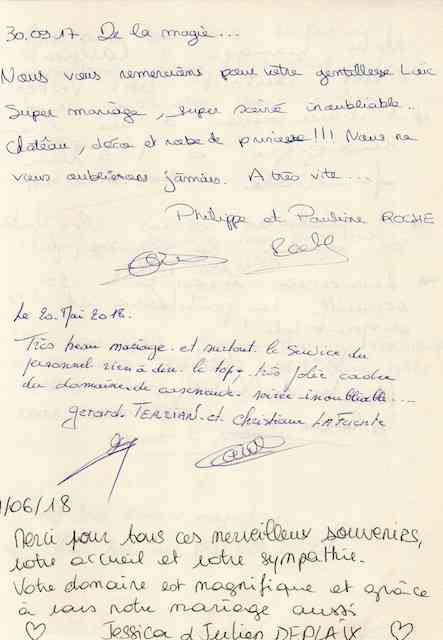 30.09.17. De la magie...
Nous vous remercions pour votre gentillesse Loïc
Super mariage, super soirée inoubliable..
Château, déco et robe de princesse!!! Nous ne
vous oublierons jamais. A très vite...
Philippe et Pauline ROCHE
Le 20. Mai 2018.
Très beau mariage. et surtout le service du
personnel rien à dire. le top, très jolie cadre
du domaine de soirée inoubliable....
Gerard TERZIAN. et Christiane LAFUENTE
/06/18
Merci pour tous ces merveilleux souvenirs,
votre accueil et votre sympathie.
Votre domaine est magnifique et grâce
à vous notre mariage aussi
♡ Jessica & Julien DEPLAIX ♡